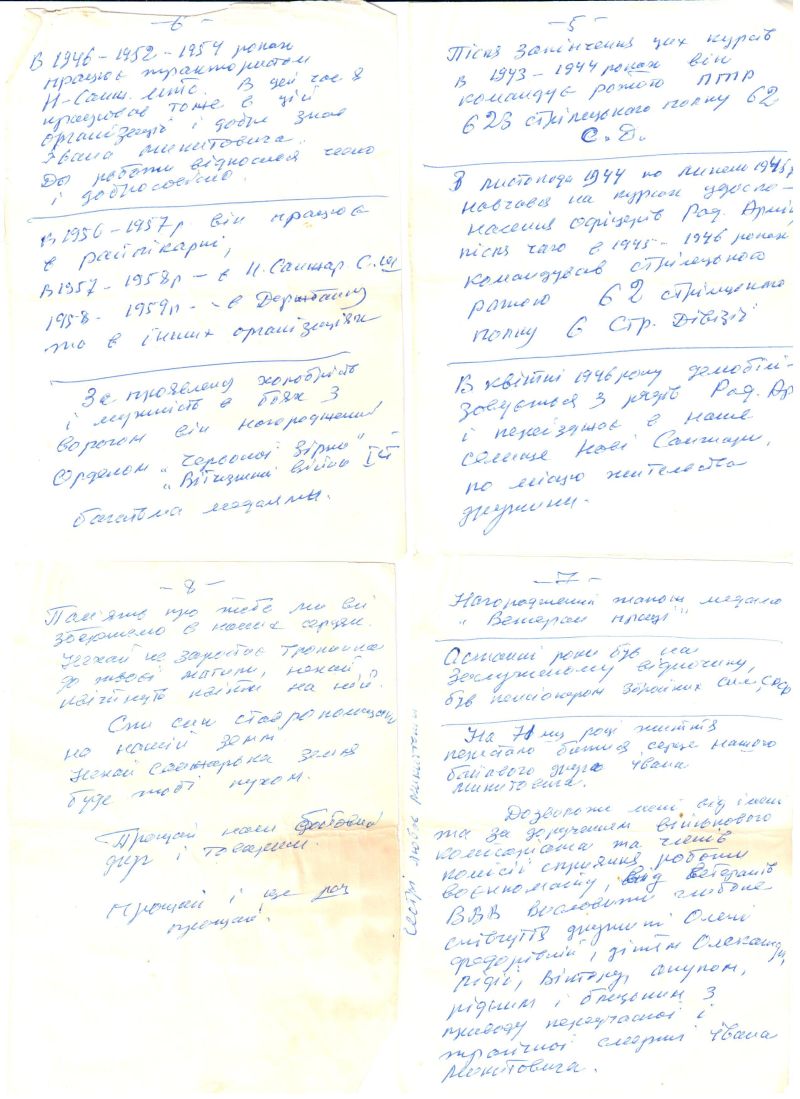 - 5 -
Після закінчення цих курсів
в 1943 - 1944 роках він
командує ротою ПТР
623 стрілецького полку 62
С. Д.
З листопада 1944 по липень 1945р
навчався на курсах удоско-
налення офіцерів Рад. Армії
після чого в 1945 - 1946 роках
командував стрілецькою
ротою 62 стрілецького
полку 6 Стр. Дівізії
В квітні 1946 року демобілі-
зовується з рядів Рад. Ар
і переїзджає в наше
селище Нові Санжари,
по місцю жительства
дружини.
- 6 -
В 1946 - 1952 - 1954 роках
працює трактористом
Н-Санж. МТС. В цей час я
працював тоже в цій
організації і добре знав
Івана Микитовича.
До роботи відносився чесно
і добросовісно.
В 1956 - 1957р він працює
в райпікарні,
В 1957 - 1958р - в Н. Санжар С.
1958 - 1959р - в Держбанку
та в інших організаціях
За проявлену хоробрість
і мужність в боях з
ворогом він нагороджений
Орденом "Червоної Зірки"
"Вітчизняної війни" II
багатьма медалями.
- 7 -
Нагороджений також медаллю
"Ветеран праці"
Останні роки був на
заслуженому відпочинку,
був пенсіонером збройних сил,
На 71 му році життя
перестало битися серце нашого
бойового друга Івана
Микитовича.
Дозвольте мені від імені
та за дорученням військового
комісаріата та членів
комісії сприяння роботи
воєнкомату, від ветеранів
ВВВ висловити глибоке
співчуття дружині Олені
Федорівній, дітям Олександру,
Лідії, Віктору, онукам,
рідним і близьким з
приводу передчасної і
трагічної смерті Івана
Микитовича.
- 8 -
Пам'ять про тебе ми всі
збережемо в наших серцях.
Нехай не заростає тропинка
до твоєї могили, нехай
квітнуть квіти на ній.
Спи син ставрополщини
на нашій землі
Нехай санжарська земля
буде тобі пухом.
Прощай наш бойовий
друг і товариш.
Прощай і ще раз
прощай!
сестрі Любов Микитівні